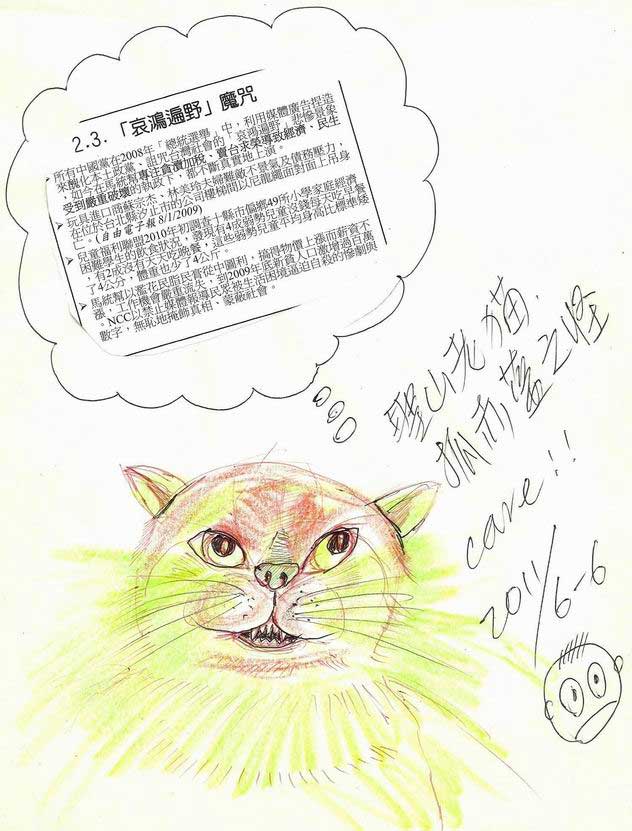 2.3.「哀鴻遍野」魔咒
➤ 所有中國黨在2008年「總統選舉」中，利用媒體廣告捏造
來醜化本土政黨、詛咒台灣社會的「哀鴻遍野」悲慘景象
，如今在馬統幫專注貪瀆加稅、賣台求榮導致經濟、民生
受到嚴重破壞的執政下，都不斷真實地上演。
➤ 玩具進口商蘇宗杰、林美玲夫婦難敵不景氣及債務壓力，
在位於台北縣汐止市的公司樓梯間以尼龍繩面對面上吊身
亡。(自由電子報 8/1/2009)
➤ 兒童福利聯盟2010年初調查十縣市偏鄉49所小學家庭經濟
困難學生的飲食狀況，發現有4成弱勢兒童沒錢每天吃早餐
，有2成沒有天天吃晚餐，這些弱勢兒童平均身高比標準矮
了4公分，體重也少了4公斤。
➤ 馬統幫以濫花民脂民膏從中圖利，搞得物價上漲而薪資不
漲，工作機會嚴重流失，到2009年底新貧人口激增過百萬
。NCC以禁止媒體報導民眾被生活困境逼迫自殺的慘劇與
數字，無恥地掩飾真相、蒙蔽社會。
山老猫.
之怪
care!!
2011/6-6